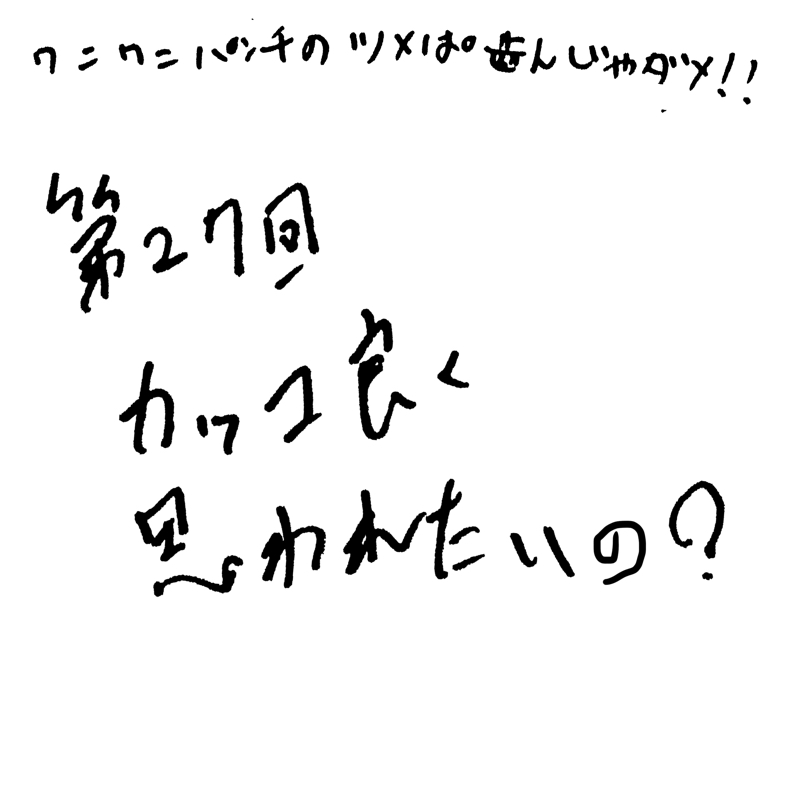 ワニワニパンチのツメは歯んじゃダメ!!
第27回
カッコ良く
思われたいの?